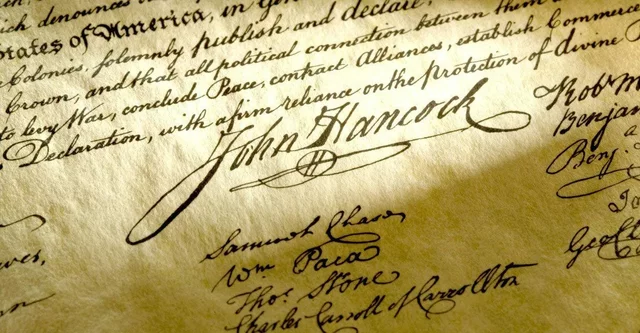 ich denounces
States of America, in Gen
Colonies, solemnly publish and declare,
Crown, and that all political connection between them a
to levy War, conclude Peace, contract Alliances, establish Commerce
Declaration, with a firm reliance on the protection of divine P
John Hancock
Samuel Chase
Wm Paca
Thos. Stone
Charles Carroll of Carrollton
Rob M
Benjam
Benj.
Ja
Geo